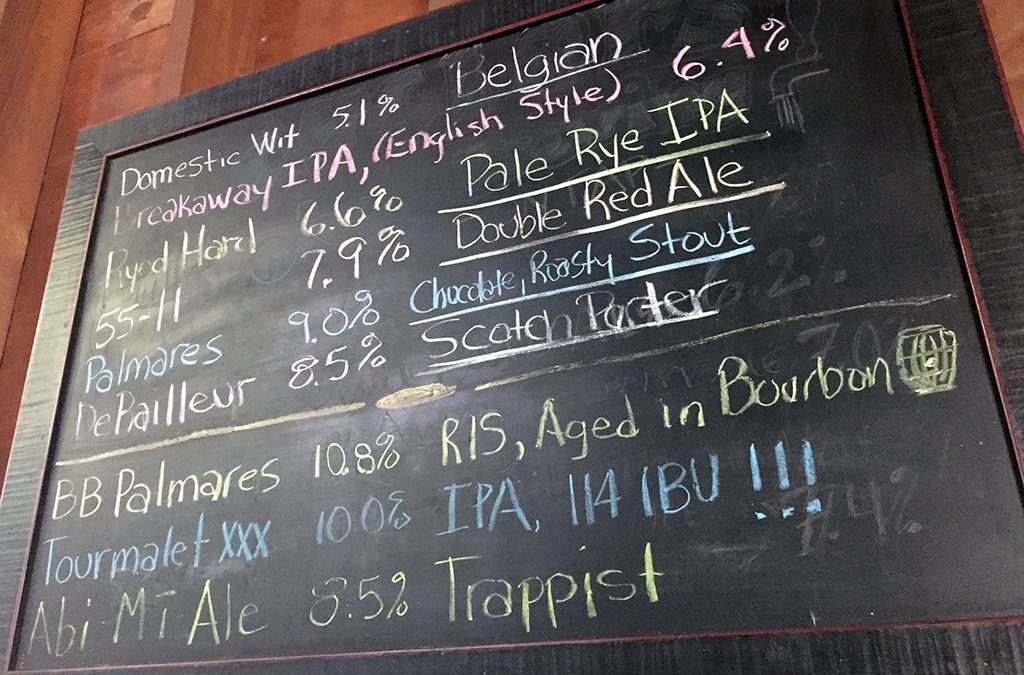 Domestic Wit 5.1% Belgian
Breakaway IPA, (English Style) 6.4%
Ryed Hard 6.6% Pale Rye IPA
55-11 7.9% Double Red Ale
Palmares 9.0% Chocolate, Roasty Stout
DeRailleur 8.5% Scotch Porter
BB Palmares 10.8% RIS, Aged in Bourbon
Tourmalet xxx 10.0% IPA, 114 IBU !!!
Abi-Mi Ale 8.5% Trappist